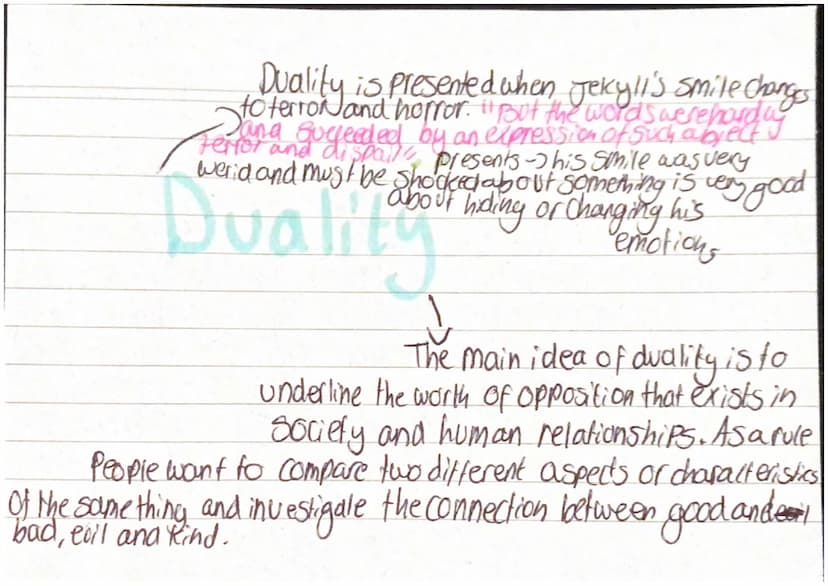 Duality is presented when Jekyll's smile changes
to terror and horror. "But the words were hardly
and succeeded by an expression of such abject
terror and dispair", presents → his smile was very
werid and must be shocked about something is very good
about hiding or changing his
emotions
Duality
The main idea of duality is to
underline the worth of opposition that exists in
society and human relationships. As a rule
People want to compare two different aspects or characteristics
of the same thing and investigate the connection between good and evil
bad, evil and kind.